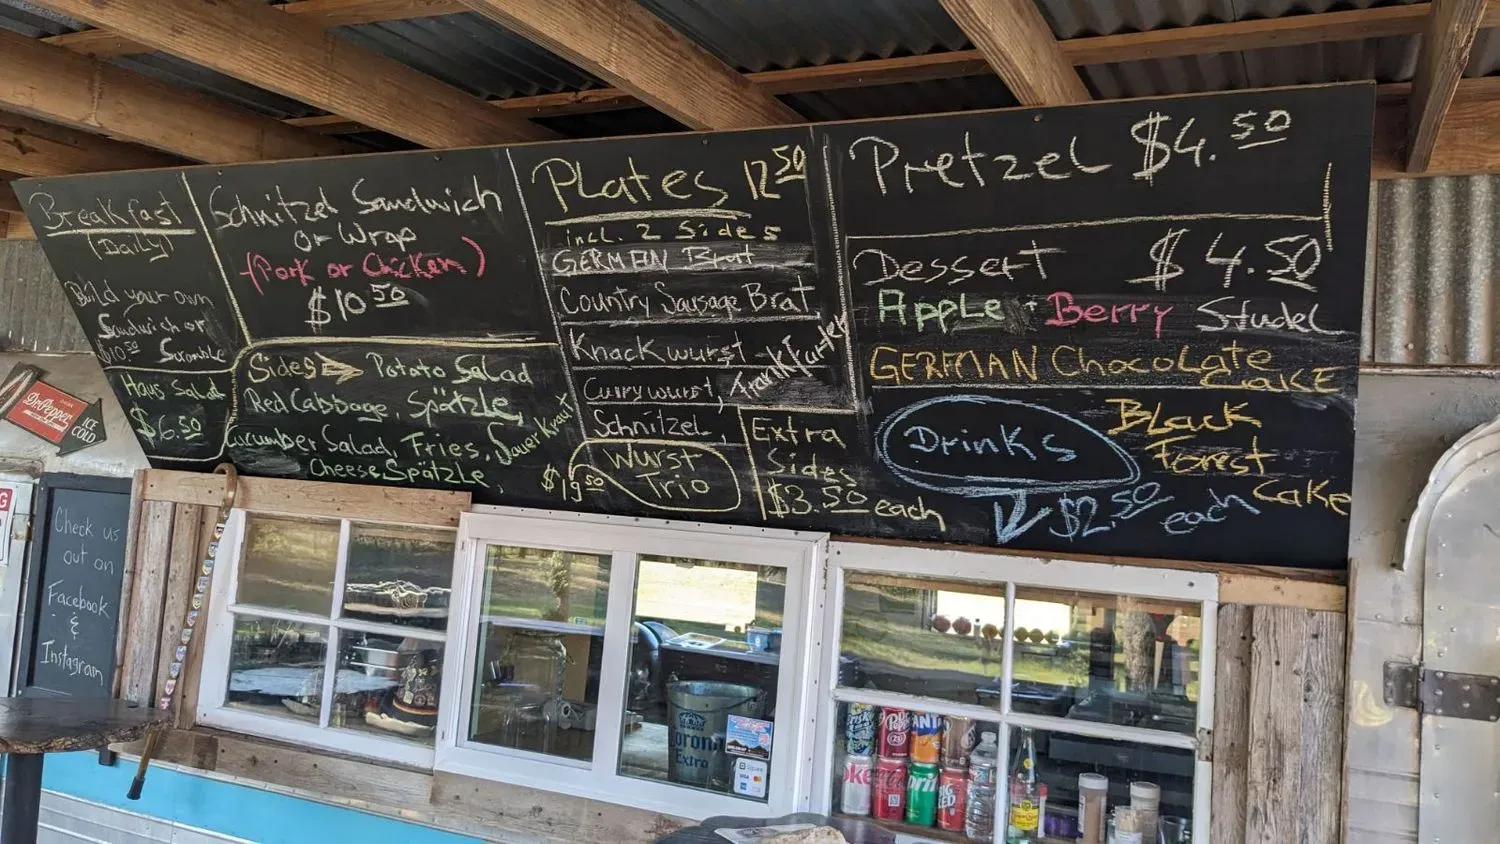 Breakfast
(Daily)
Build your own
Sandwich or
$10.50 Scramble
Haus Salad
$6.50
Schnitzel Sandwich
or Wrap
(Pork or Chicken)
$10.50
Sides Potato Salad
Red Cabbage Spätzle,
Cucumber Salad, Fries, SauerKraut
Cheese Spätzle,
Plates 12.50
incl. 2 Sides
GERMAN Brat
Country Sausage Brat,
Knackwurst
Frankfurter
Currywurst,
Schnitzel,
Wurst
Trio
$19.50
Extra
Sides
$3.50 each
Pretzel $4.50
Dessert $4.50
Apple + Berry Studel
GERMAN Chocolate
CAKE
Black
Forest
Cake
Drinks
$2.50
each
Dr Pepper
ICE
COLD
Check us
out on
Facebook
&
Instagram
Corona
Extra